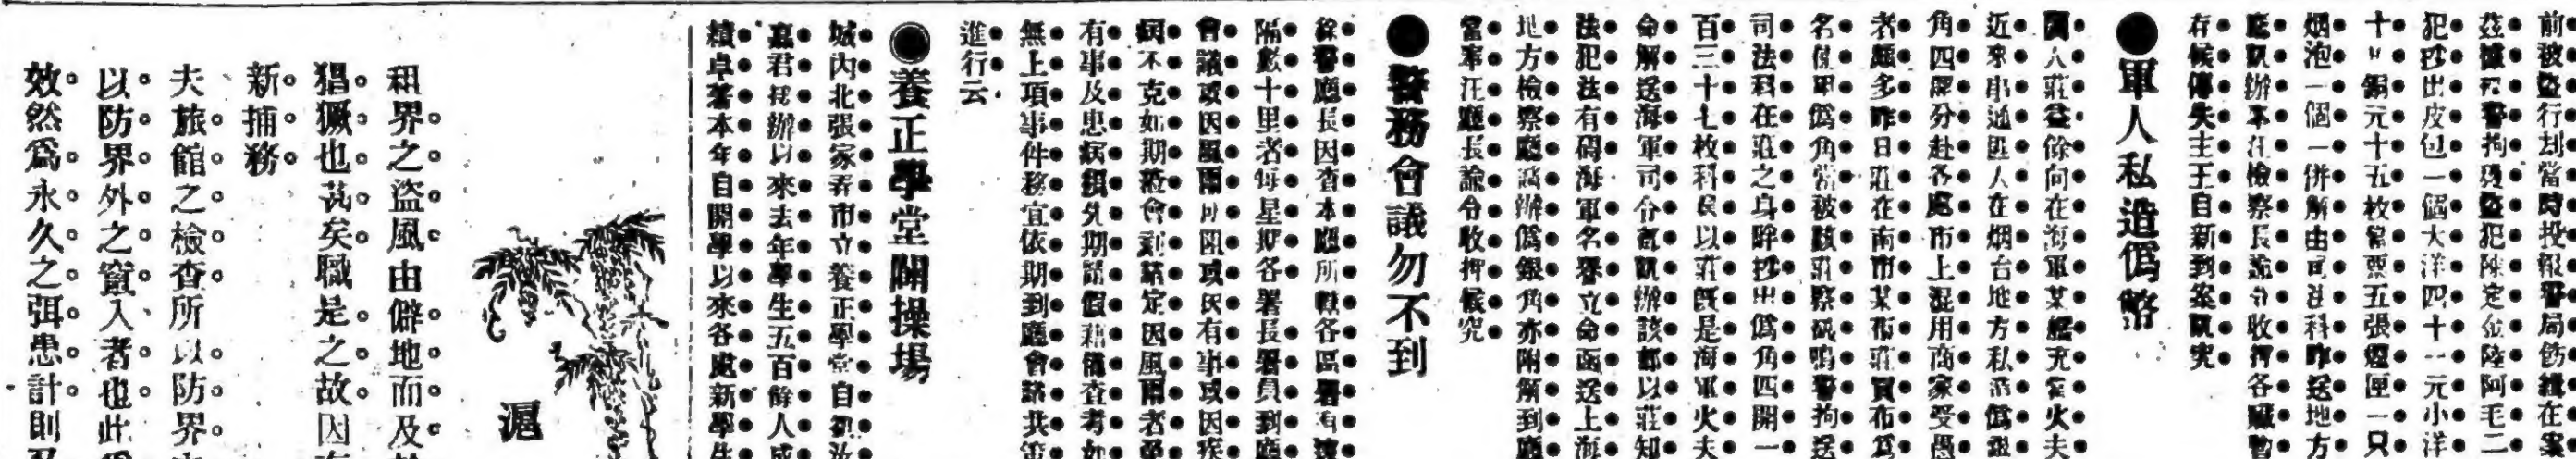 前被盜行刦當時投報警局飭緝在案
茲據探警拘獲盜犯陳定金陸阿毛二
犯抄出皮包一個大洋四十一元小洋
十 銅元十五枚當票五張煙匣一只
烟泡一個一併解由司法科昨送地方
廳訊辦本汪檢察長諭令收押各贓暫
存候傳失主王自新到案訊究
●軍人私造僞幣
人莊益餘向在海軍某艦充當火夫
近來串通匪人在烟台地方私造僞銀
角四處分赴各處市上混用商家受愚
者頗多昨日莊在南市某布莊買布爲
名使用僞角當被該莊察破鳴警拘送
司法科在莊之身畔抄出僞角四開一
百三十七枚科長以莊旣是海軍火夫
命解送海軍司令部訊辦該部以莊知
法犯法有碍海軍名譽立命函送上海
地方檢察廳訊辦僞銀角亦附解到廳
當奉汪廳長諭令收押候究
●警務會議勿不到
徐警廳長因查本廳所轄各區署有遠
隔數十里者每星期各署長署員到廳
會議或因風雨所阻或因有事或因疾
病不克如期蒞會刻諸定因風雨者
有事及患病須先期請假藉備查考如
無上項事件務宜依期到廳會議共策
進行云
◉養正學堂開操場
城內北張家弄市立養正學堂自
嘉君接辦以來去年學生五百餘人成
績卓著本年自開學以來各處新學生
滬
租界之盜風由僻地而及
猖獗也甚矣職是之故因
新捕務
夫旅館之檢查所以防界
以防界外之竄入者也此
效然爲永久之弭患計則